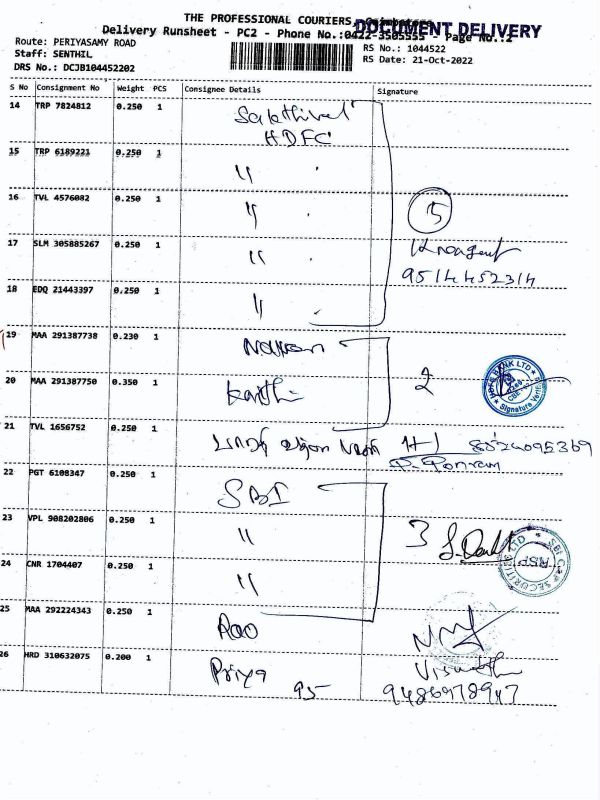 THE PROFESSIONAL COURIERS, Coimbatore
DOCUMENT DELIVERY
Delivery Runsheet - PC2 - Phone No.:0422-3505555 - Page No.:2
Route: PERIYASAMY ROAD
RS No.: 1044522
Staff: SENTHIL
RS Date: 21-Oct-2022
DRS No.: DCJB104452202
S No Consignment No Weight PCS Consignee Details Signature
14 TRP 7824812 0.250 1 Sakthivel
HDFC
15 TRP 6189221 0.250 1 "
16 TVL 4576082 0.250 1 " 5
17 SLM 305885267 0.250 1 "
9514452314
18 EDQ 21443397 0.250 1 "
19 MAA 291387738 0.230 1
20 MAA 291387750 0.350 1 Karthi 2
BANK LTD
Signature Verified
21 TVL 1656752 0.250 1 8524095369
P. Ponram
22 PGT 6108347 0.250 1 SBI
23 VPL 908202806 0.250 1 " 3
SBI CAP SECURITIES LTD
RSP
24 CNR 1704407 0.250 1 "
25 MAA 292224343 0.250 1 Rao
26 HRD 310632075 0.200 1 Priya
95 9486978947